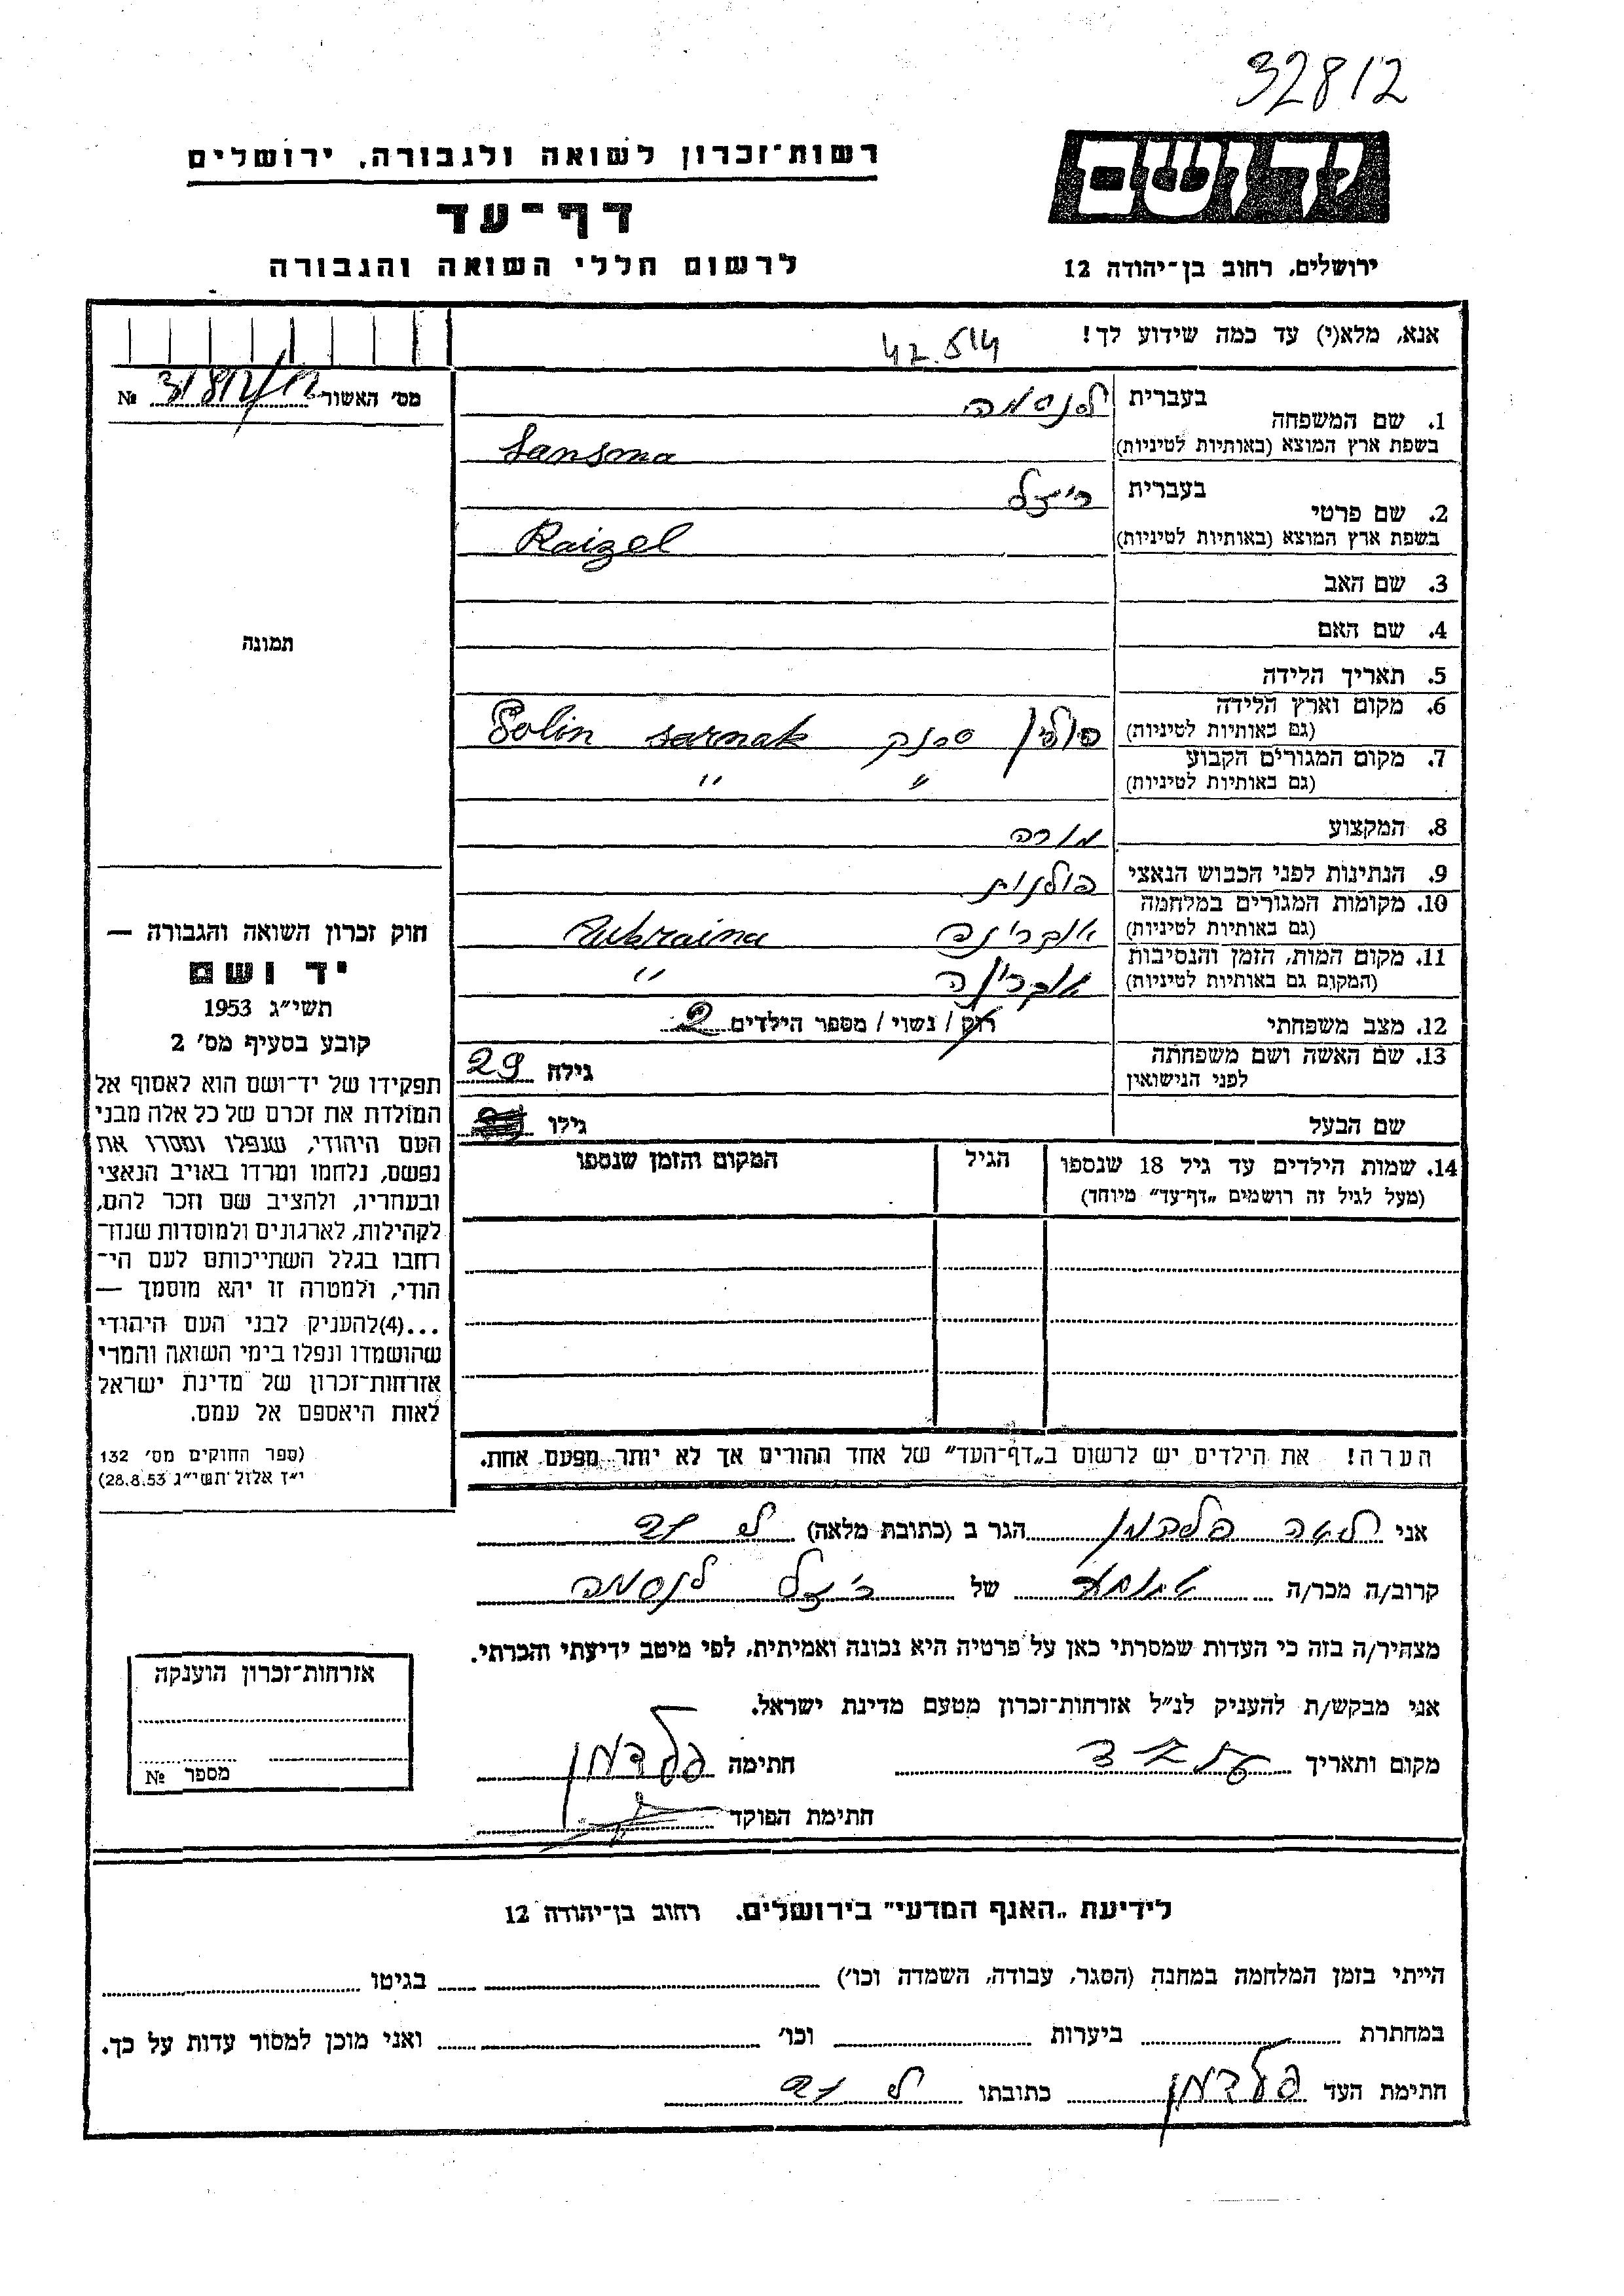 32812
רשות־זכרון לשואה ולגבורה, ירושלים
יד ושם
דף־עד
לרשום חללי השואה והגבורה
ירושלים, רחוב בן־יהודה 12
אנא, מלא(י) עד כמה שידוע לך!
42.514
מס׳ האשור № 31812/12
1. שם המשפחה בעברית לנסמה
בשפת ארץ המוצא (באותיות לטיניות) Lansma
2. שם פרטי בעברית רייזל
בשפת ארץ המוצא (באותיות לטיניות) Raizel
3. שם האב
4. שם האם
תמונה
5. תאריך הלידה
6. מקום וארץ הלידה
(גם באותיות לטיניות) פולין סרנק sarnak Polin
7. מקום המגורים הקבוע
(גם באותיות לטיניות) " "
8. המקצוע מורה
9. הנתינות לפני הכבוש הנאצי פולנית
10. מקומות המגורים במלחמה
(גם באותיות לטיניות) אוקרינה Ukraina
11. מקום המות, הזמן והנסיבות
(המקום גם באותיות לטיניות) אוקרינה "
12. מצב משפחתי רוק / נשוי / מספר הילדים 2
13. שם האשה ושם משפחתה
לפני הנישואין גילה 29
שם הבעל גילו
14. שמות הילדים עד גיל 18 שנספו הגיל המקום והזמן שנספו
(מעל לגיל זה רושמים „דף־עד״ מיוחד)
חוק זכרון השואה והגבורה —
יד ושם
תשי״ג 1953
קובע בסעיף מס׳ 2
תפקידו של יד־ושם הוא לאסוף אל
המולדת את זכרם של כל אלה מבני
העם היהודי, שנפלו ומסרו את
נפשם, נלחמו ומרדו באויב הנאצי
ובעוזריו, ולהציב שם וזכר להם,
לקהילות, לארגונים ולמוסדות שנח־
רבו בגלל השתייכותם לעם הי־
הודי, ולמטרה זו יהא מוסמך —
...(4)להעניק לבני העם היהודי
שהושמדו ונפלו בימי השואה והמרי
אזרחות־זכרון של מדינת ישראל
לאות היאספם אל עמם.
(ספר החוקים מס׳ 132
י״ז אלול תשי״ג 28.8.53)
הערה! את הילדים יש לרשום ב„דף־העד״ של אחד ההורים אך לא יותר מפעם אחת.
אני פלדמן הגר ב (כתובת מלאה)
קרוב/ה מכר/ה של ריזל לנסמה
מצהיר/ה בזה כי העדות שמסרתי כאן על פרטיה היא נכונה ואמיתית, לפי מיטב ידיעתי והכרתי.
אני מבקש/ת להעניק לנ״ל אזרחות־זכרון מטעם מדינת ישראל.
מקום ותאריך חתימה פלדמן
חתימת הפוקד
אזרחות־זכרון הוענקה
מספר №
לידיעת „האגף המדעי״ בירושלים. רחוב בן־יהודה 12
הייתי בזמן המלחמה במחנה (הסגר, עבודה, השמדה וכו׳) בגיטו
במחתרת ביערות וכו׳ ואני מוכן למסור עדות על כך.
חתימת העד פלדמן כתובתו